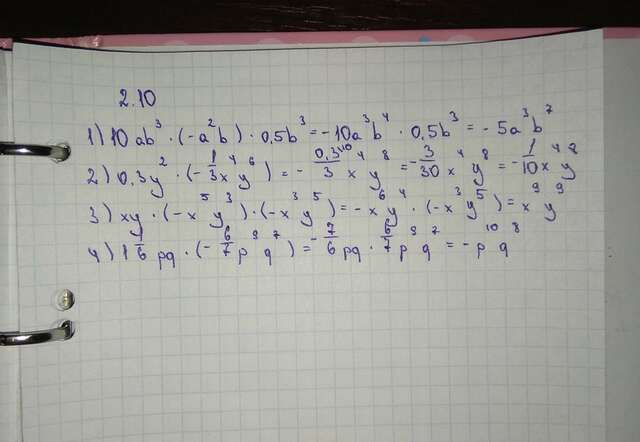 2.10
1) 10ab³ · (-a²b) · 0,5b³ = -10a³b⁴ · 0,5b³ = -5a³b⁷
2) 0,3y² · (-1/3x⁴y⁶) = -0,3\¹⁰/3 x⁴y⁸ = -3/30x⁴y⁸ = -1/10x⁴y⁸
3) xy · (-x⁵y³) · (-x³y⁵) = -x⁶y⁴ · (-x³y⁵) = x⁹y⁹
4) 1 1/6pq · (-6/7p⁹q⁷) = -7/6pq · 6/7p⁹q⁷ = -p¹⁰q⁸